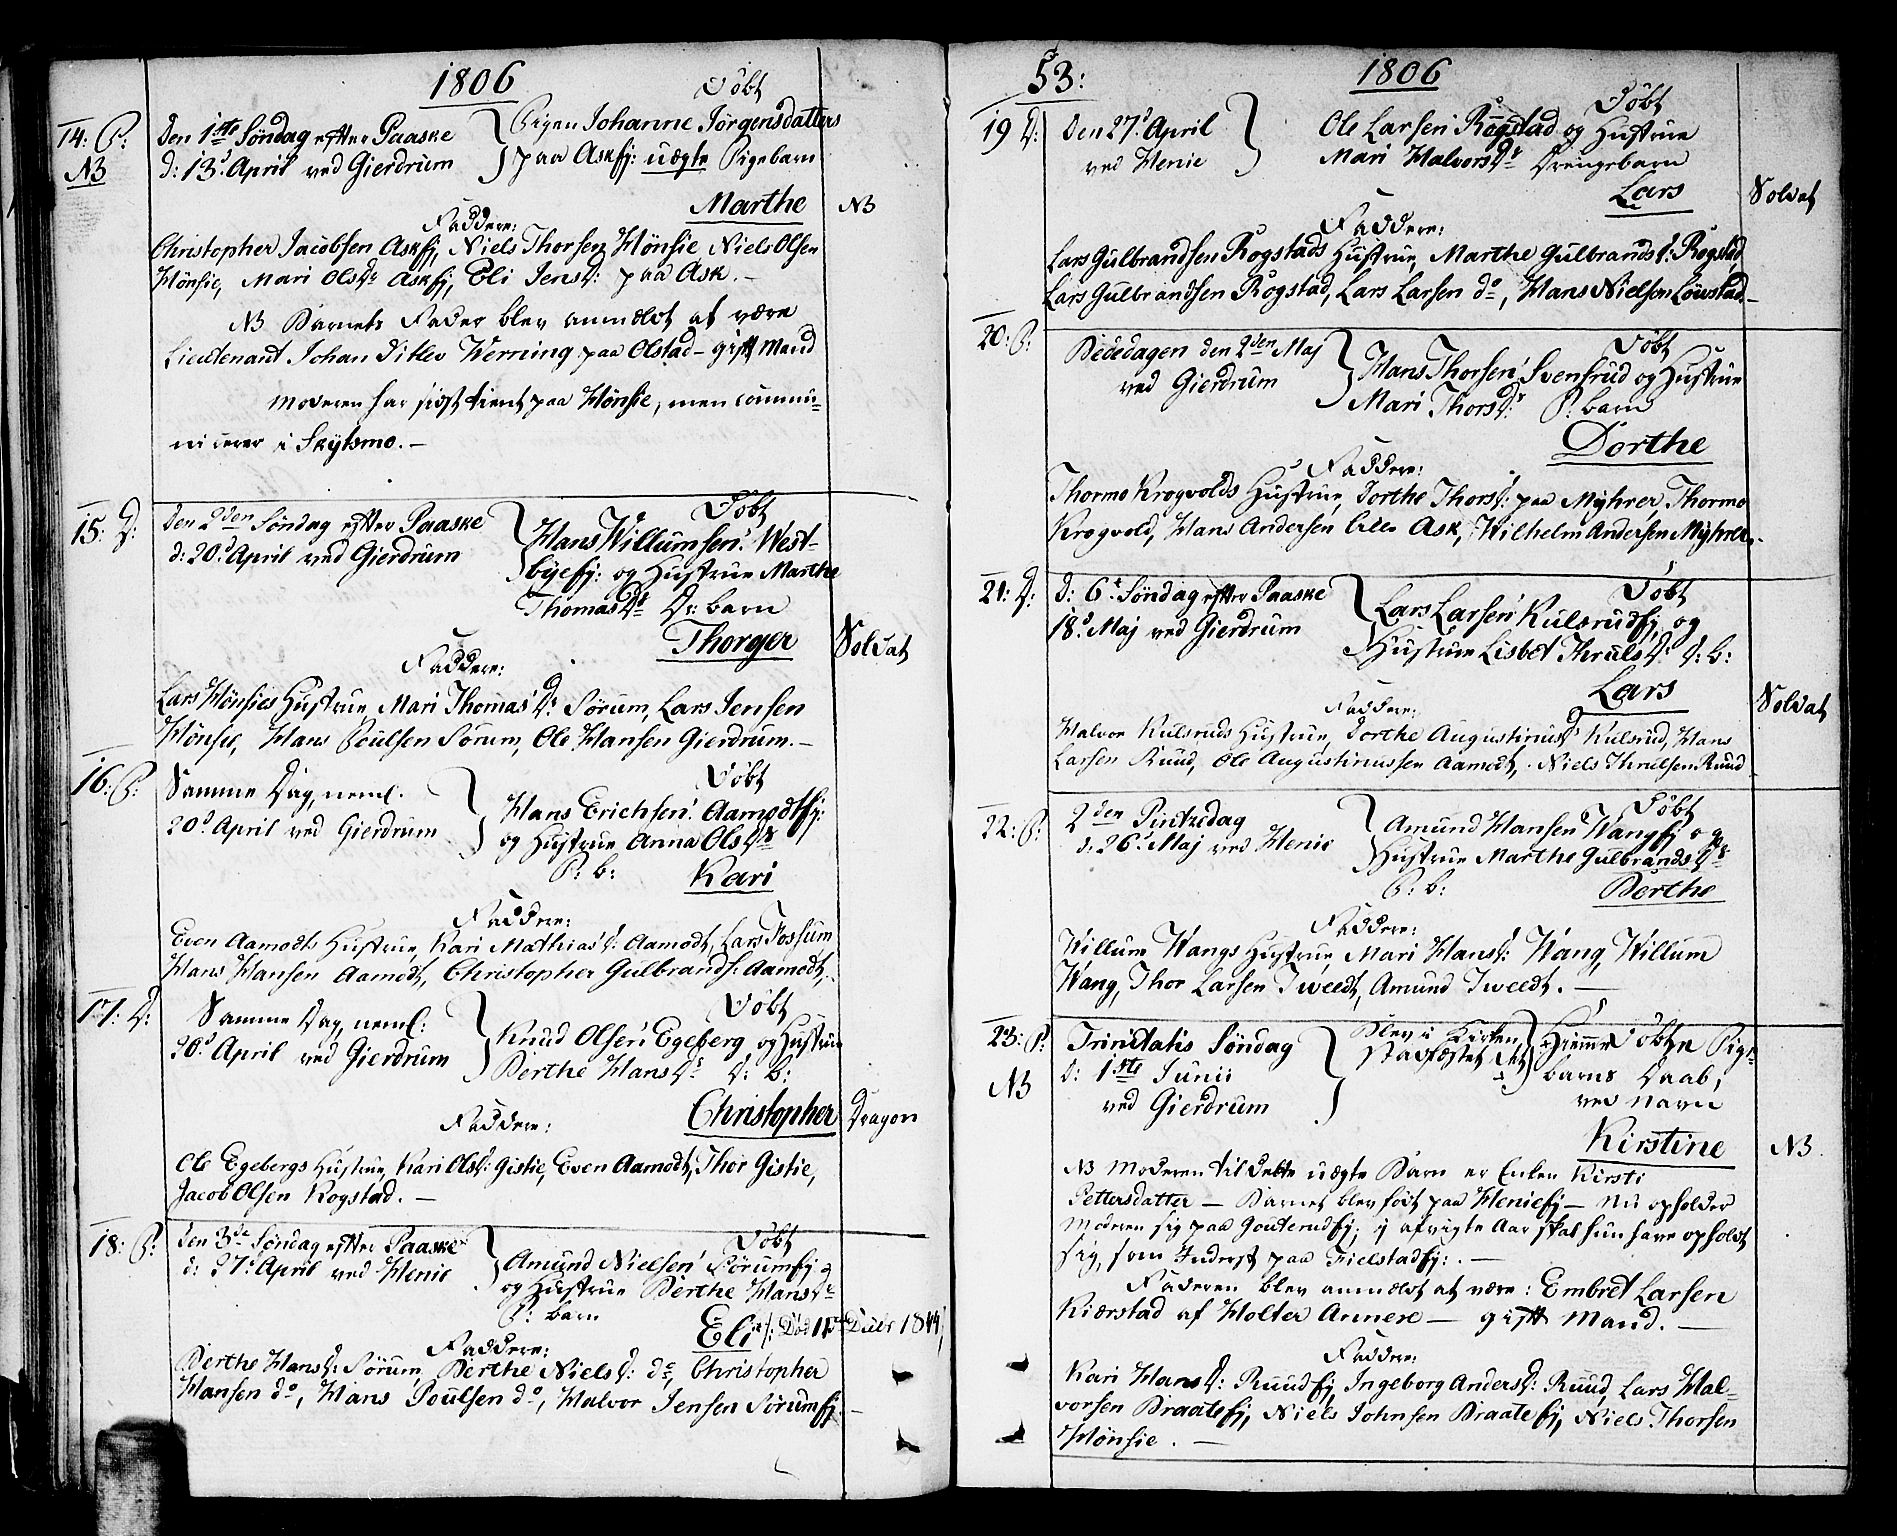 1806
14: P:
NB
Den 1ste Søndag efter Paaske
d: 13d April ved Gierdrum
Døbt
Pigen Johanne Jörgensdatters
paa Askej: uægte Pigebarn
Marthe
NB
Faddere:
Christopher Jacobsen Askej, Niels Thorsen Hönsie, Niels Olsen
Hönsie, Mari Olsdr Askej, Eli Jensd: paa Ask.-
NB Barnets Fader blev anmeldt at være
Lieutenant Johan Ditlev Werning paa Olstad - gift Mand
Moderen har sidst tient paa Hönsie, men commu-
nicerer i Skytsmo.-
15: D:
Den 2den Søndag efter Paaske
d: 20d April ved Gierdrum
Døbt
Hans Willumsen: West-
byeej: og Hustrue Marthe
Thomasdr Dr: barn
Thorger
Soldat
Faddere:
Lars Hönsies Hustrue, Mari Thomasdr: Sörum, Lars Jensen
Hönsie, Hans Poulsen Sörum, Ole Hansen Gierdrum.-
16: P:
Samme Dag, neml.
20d April ved Gierdrum
Døbt
Hans Erichsen: Aamodtej:
og Hustrue Anna Olsdr
P: b:
Kari
Faddere:
Even Aamodts Hustrue, Kari Mathiasd: Aamodt, Lars Fossum
Hans Hansen Aamodt, Christopher Gulbrands: Aamodt.
17: D:
Samme Dag, neml:
20d April ved Gierdrum
Døbt
Knud Olsen: Egeberg og Hustrue
Berthe Hansdr D: B:
Christopher
Dragon
Faddere:
Ole Egebergs Hustrue, Kari Olsd: Gistie, Even Aamodt, Thor Gistie,
Jacob Olsen Rogstad.-
18: P:
Den 3de Søndag efter Paaske
d: 27d April ved Henie
Døbt
Amund Nielsen: Sörumej
og Hustrue Berthe Hansdr
P: barn
Eli
/: Död 11te Dcbr 1844
Faddere:
Berthe Hansd: Sörum, Berthe Nielsd: do, Christopher
Hansen do, Hans Poulsen do, Halvor Jensen Sörumej.-
53:
1806
19 D:
Den 27d April
ved Henie
Døbt
Ole Larsen Rogstad og Hustrue
Mari Halvorsdr Drengebarn
Lars
Soldat
Faddere:
Lars Gulbrandsen Rogstads Hustrue, Marthe Gulbrandsd: Rogstad,
Lars Gulbrandsen Rogstad, Lars Larsen do, Hans Nielsen Löwstad.-
20: P:
Bededagen den 2den Maj
ved Gierdrum
Døbt
Hans Thorsen: Svensrud og Hustrue
Mari Thorsdr: P: barn
Dorthe
Faddere:
Thormo Krogvolds Hustrue, Dorthe Thorsd: paa Myhrer, Thormo
Krogvold, Hans Andersen Ask, Wilhelm Andersen Myhrer.
21: D:
D: 6te Søndag efter Paaske
18d Maj ved Gierdrum
Døbt
Lars Larsen: Kulsrudej, og
Hustrue Lisbet Thrulsd: D: b:
Lars
Soldat
Faddere:
Halvor Kulsruds Hustrue, Dorthe Augustinusd: Kulsrud, Hans
Larsen Ruud, Ole Augustinussen Aamodt, Niels Thrulsen Ruud
22: P:
2den Pintzedag
d: 26d Maj ved Henie
Døbt
Amund Hansen Wangej og
Hustrue Marthe Gulbrandsdr
P: b:
Berthe
Faddere:
Willum Wangs Hustrue, Mari Hansd: Wang, Willum
Wang, Thor Larsen Tweedt, Amund Tweedt.-
23: P:
NB
Trinitatis Söndag
d: 1ste Junii
ved Gierdrum
Blev i Kirken
stadfæstet et
Hiemme Döbte Pige-
barns Daab,
ved Navn
Kirstine
NB
NB Moderen til dette uægte Barn er Enken Kirsti
Pettersdatter - Barnet blev född paa Henieej - Nu opholder
Moderen sig paa Gouterudej; i afvigte Aar skal hun have opholdt
sig, som Inderst paa Fielstadej:.-
Faderen blev anmeldt at være: Embret Larsen
Kiærstad af Holter Annex - gift Mand.-
Faddere:
Kari Hansd: Ruudej, Ingeborg Andersd: Ruud, Lars Hal-
vorsen Braateej, Niels Johnsen Braateej, Niels Thorsen
Hönsie.-